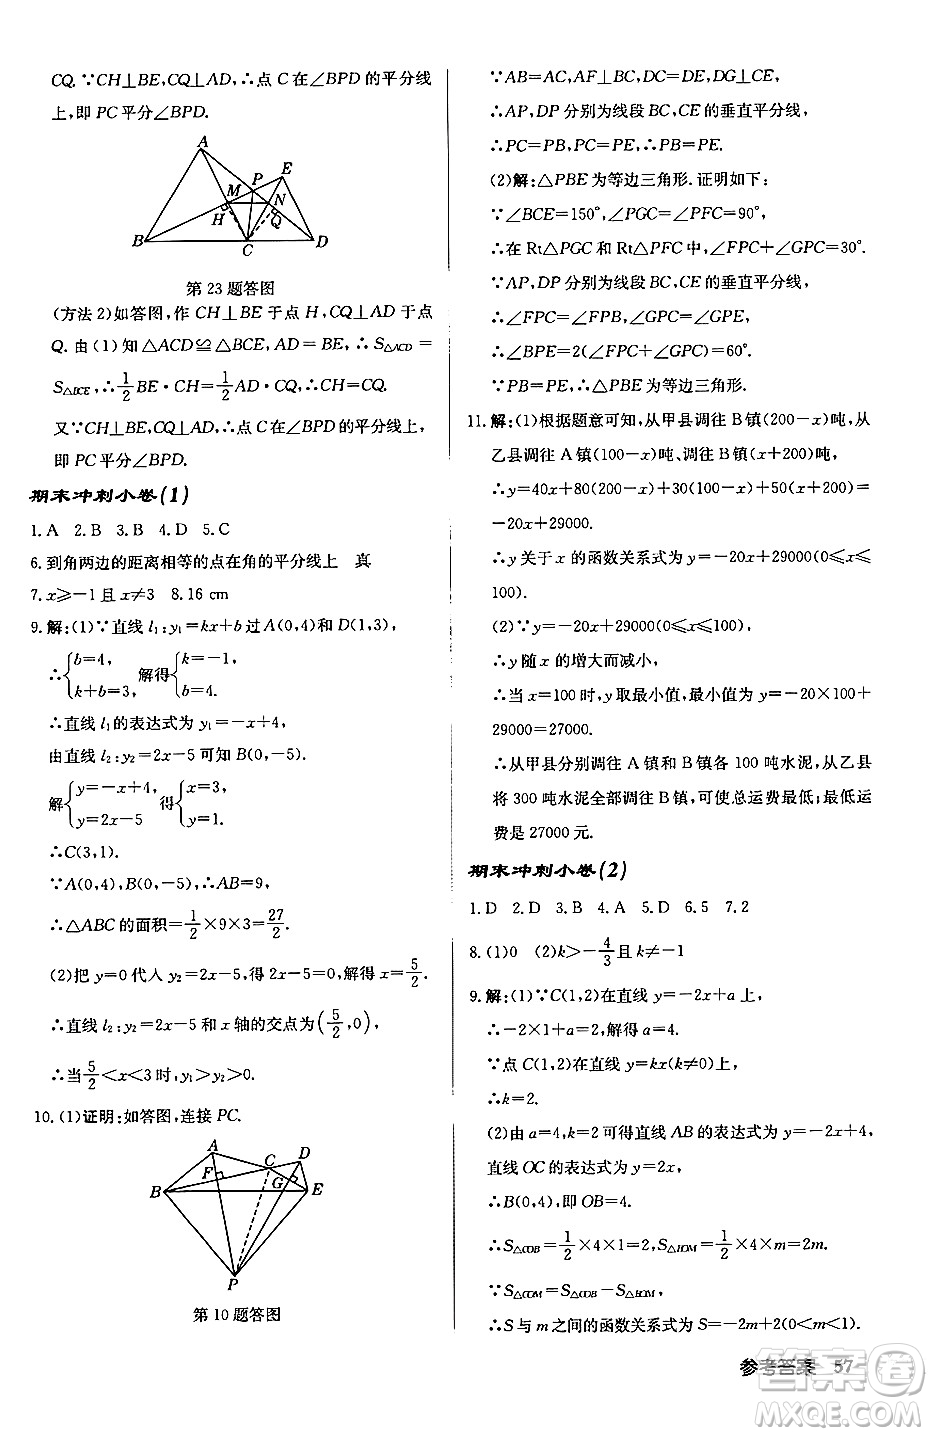 CQ.∵CH⊥BE,CQ⊥AD,∴点 C 在∠BPD 的平分线
上,即 PC 平分∠BPD.
A
E
P
M
N
H
Q
B
C
D
第 23 题答图
(方法 2)如答图,作 CH⊥BE 于点 H,CQ⊥AD 于点
Q. 由(1)知△ACD≌△BCE,AD=BE,∴S△ACD=
S△BCE,∴1/2 BE·CH=1/2 AD·CQ,∴CH=CQ.
又∵CH⊥BE,CQ⊥AD,∴点 C 在∠BPD 的平分线上,
即 PC 平分∠BPD.
期末冲刺小卷(1)
1. A 2. B 3. B 4. D 5. C
6. 到角两边的距离相等的点在角的平分线上 真
7. x≥-1 且 x≠3 8. 16 cm
9. 解:(1)∵直线 l₁:y₁=kx+b 过 A(0,4)和 D(1,3),
∴{b=4, k+b=3, 解得{k=-1, b=4.
∴直线 l₁的表达式为 y₁=-x+4,
由直线 l₂:y₂=2x-5 可知 B(0,-5);
解{y=-x+4, y=2x-5 得{x=3, y=1.
∴C(3,1).
∵A(0,4),B(0,-5),∴AB=9,
∴△ABC 的面积=1/2×9×3=27/2.
(2)把 y=0 代入 y₂=2x-5,得 2x-5=0,解得 x=5/2.
∴直线 l₂:y₂=2x-5 和 x 轴的交点为(5/2,0),
∴当5/2<x<3 时,y₁>y₂>0.
10. (1)证明:如答图,连接 PC.
A
C
D
F
G
B
E
P
第 10 题答图
∵AB=AC,AF⊥BC,DC=DE,DG⊥CE,
∴AP,DP 分别为线段 BC,CE 的垂直平分线,
∴PC=PB,PC=PE,∴PB=PE.
(2)解:△PBE 为等边三角形. 证明如下:
∵∠BCE=150°,∠PGC=∠PFC=90°,
∴在 Rt△PGC 和 Rt△PFC 中,∠FPC+∠GPC=30°.
∵AP,DP 分别为线段 BC,CE 的垂直平分线,
∴∠FPC=∠FPB,∠GPC=∠GPE,
∴∠BPE=2(∠FPC+∠GPC)=60°.
∵PB=PE,∴△PBE 为等边三角形.
11. 解:(1)根据题意可知,从甲县调往 B 镇(200-x)吨,从
乙县调往 A 镇(100-x)吨、调往 B 镇(200+x)吨,
∴y=40x+80(200-x)+30(100-x)+50(x+200)=
-20x+29000.
∴y 关于 x 的函数关系式为 y=-20x+29000(0≤x≤
100).
(2)∵y=-20x+29000(0≤x≤100),
∴y 随 x 的增大而减小,
∴当 x=100 时,y 取最小值,最小值为 y=-20×100+
29000=27000.
∴从甲县分别调往 A 镇和 B 镇各 100 吨水泥,从乙县
将 300 吨水泥全部调往 B 镇,可使总运费最低;最低运
费是 27000 元.
期末冲刺小卷(2)
1. D 2. D 3. B 4. A 5. D 6. 5 7. 2
8. (1)0 (2)k>-4/3且 k≠-1
9. 解:(1)∵C(1,2)在直线 y=-2x+a 上,
∴-2×1+a=2,解得 a=4.
∵点 C(1,2)在直线 y=kx(k≠0)上,
∴k=2.
(2)由 a=4,k=2 可得直线 AB 的表达式为 y=-2x+4,
直线 OC 的表达式为 y=2x,
∴B(0,4),即 OB=4.
∴S△COB=1/2×4×1=2,S△BOM=1/2×4×m=2m.
∵S△COM=S△COB-S△BOM,
∴S 与 m 之间的函数关系式为 S=-2m+2(0<m<1).
参考答案 57
答案圈
MXQE.COM